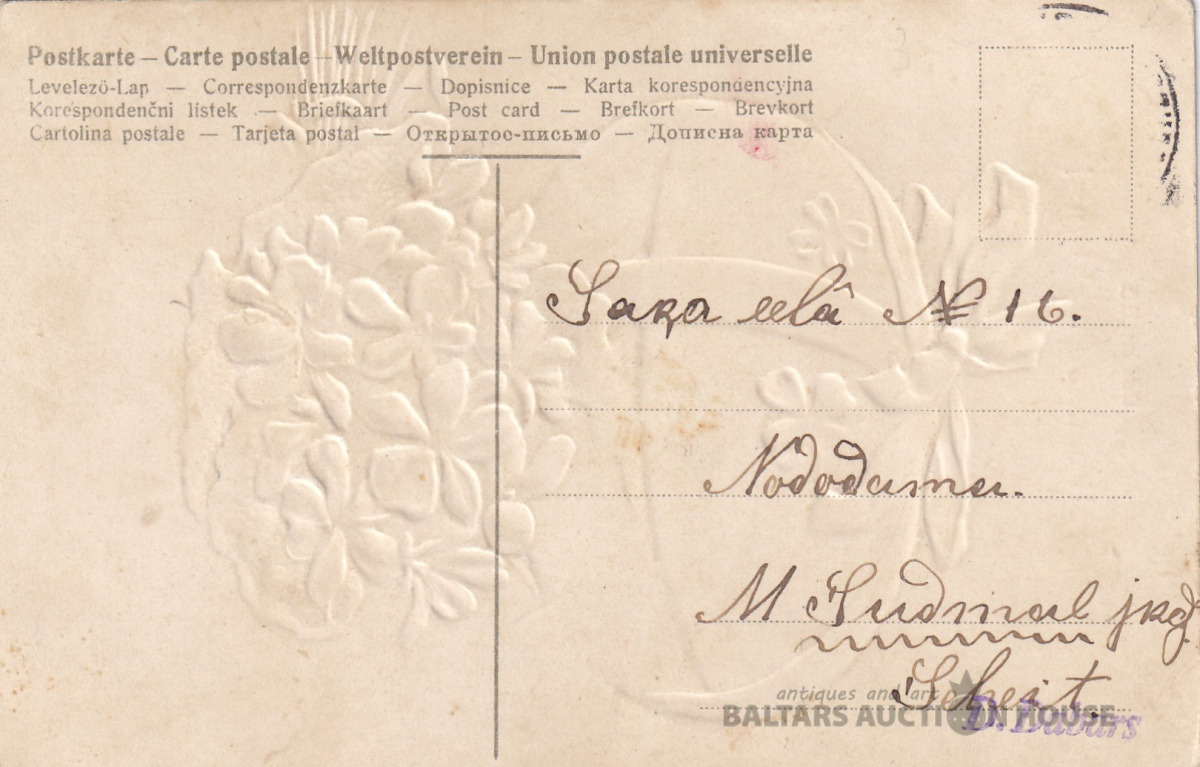 Postkarte – Carte postale – Weltpostverein – Union postale universelle
Levelező-Lap — Correspondenzkarte — Dopisnice — Karta korespondencyjna
Korespondenční lístek — Briefkaart — Post card — Brefkort — Brevkort
Cartolina postale — Tarjeta postal — Открытое-письмо — Дописна карта
№ 16.
Nododama.
M Sudmal jkdz.
Scheit.
antiques and art
BALTARS AUCTION HOUSE